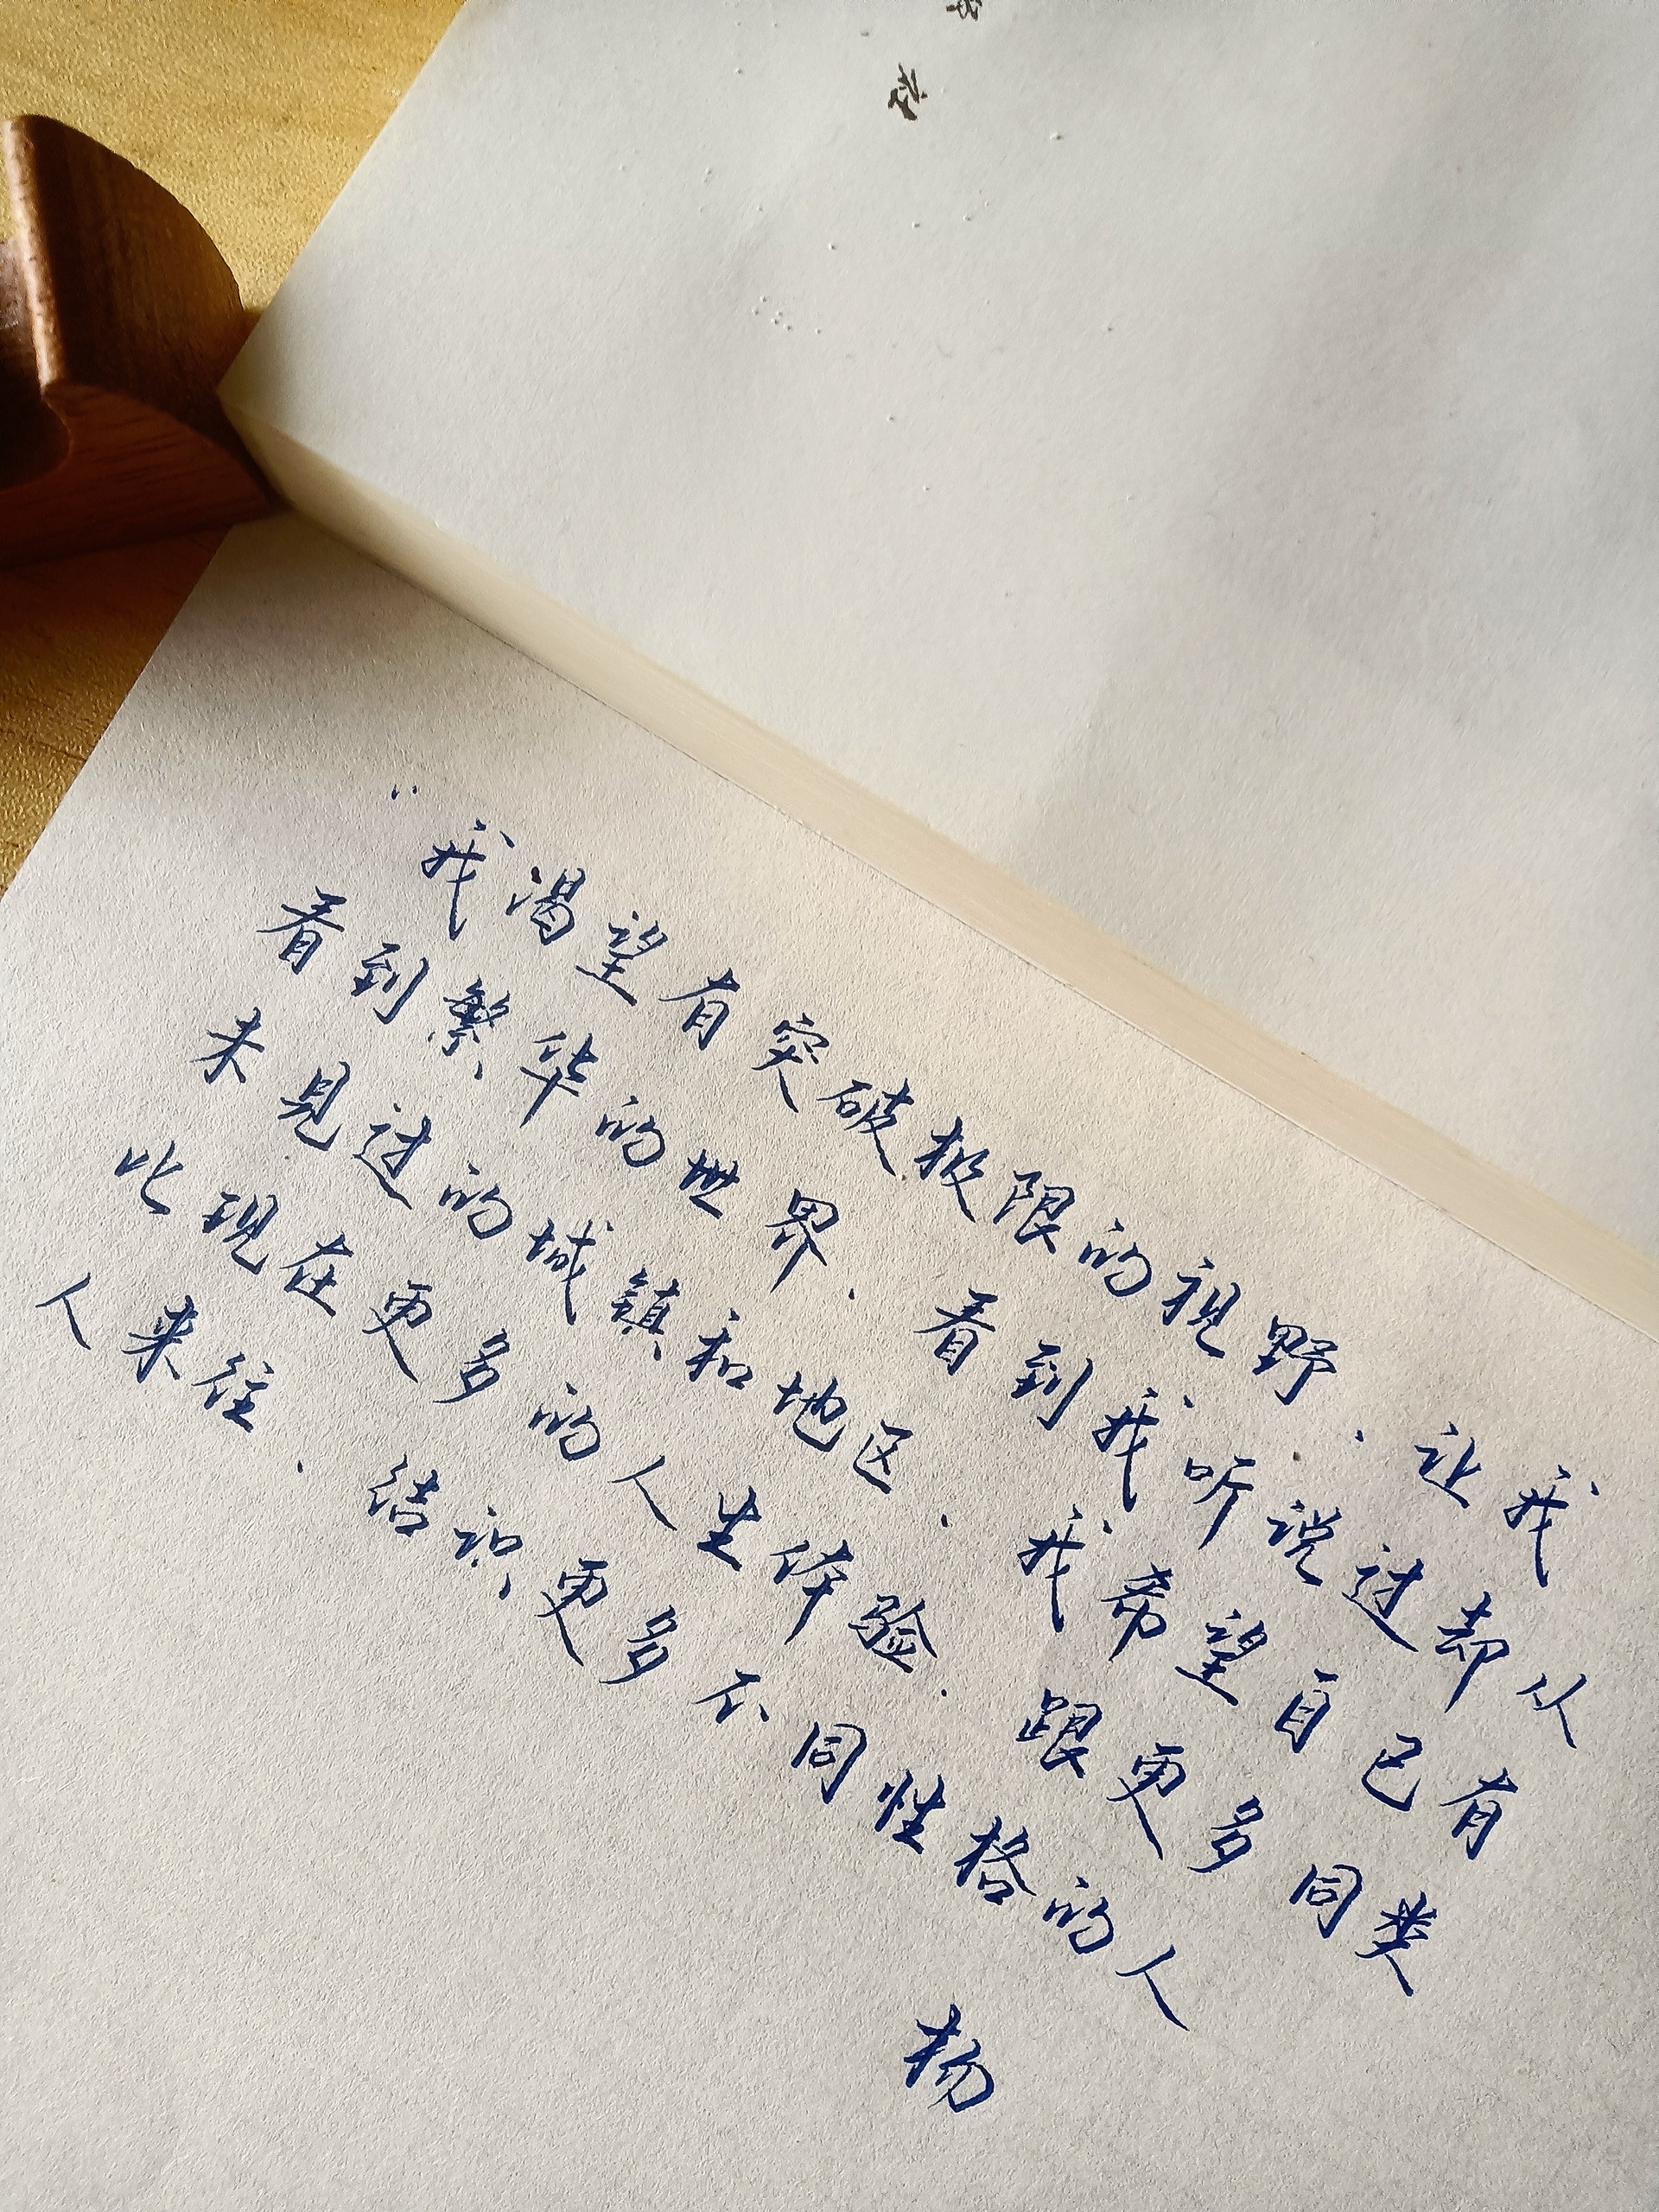 “我渴望有突破极限的视野.让我
看到繁华的世界.看到我听说过却从
未见过的城镇和地区.我希望自己有
比现在更多的人生体验.跟更多同类
人来往.结识更多不同性格的人
杨